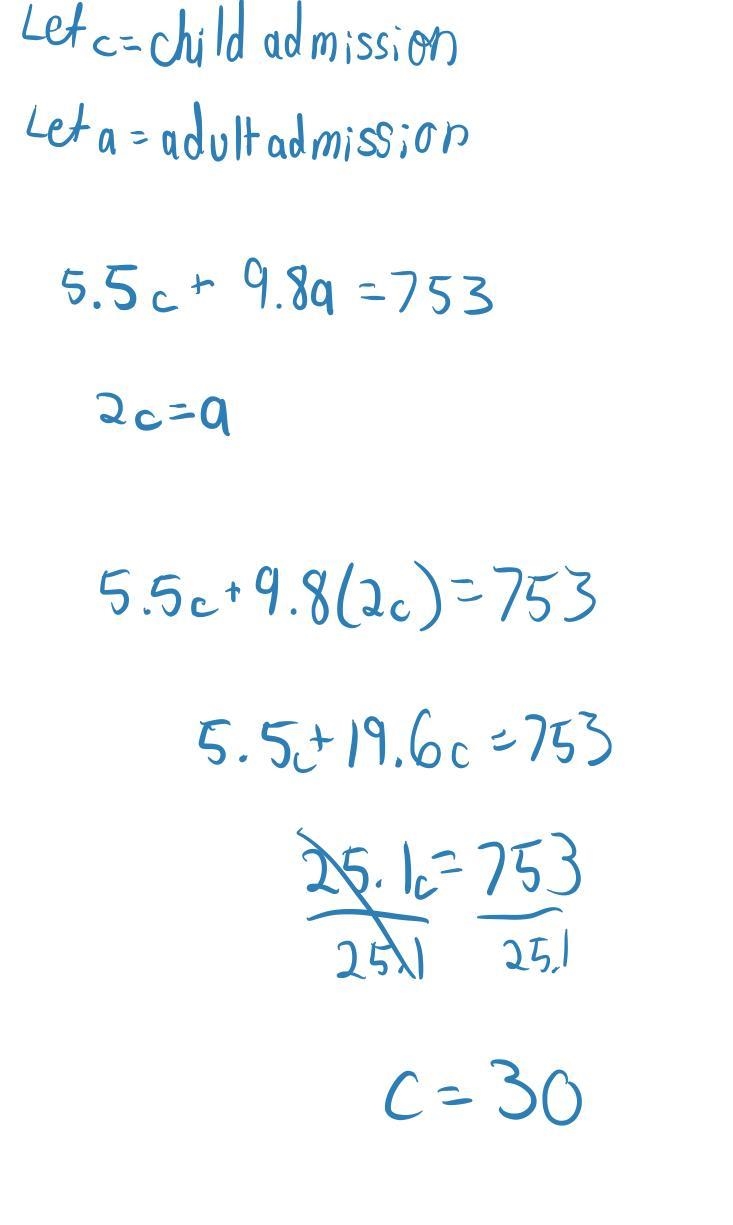 Let c = child admission
Let a = adult admission
5.5c + 9.8a = 753
2c = a
5.5c + 9.8(2c) = 753
5.5c + 19.6c = 753
25.1c = 753
25.1 25.1
c = 30